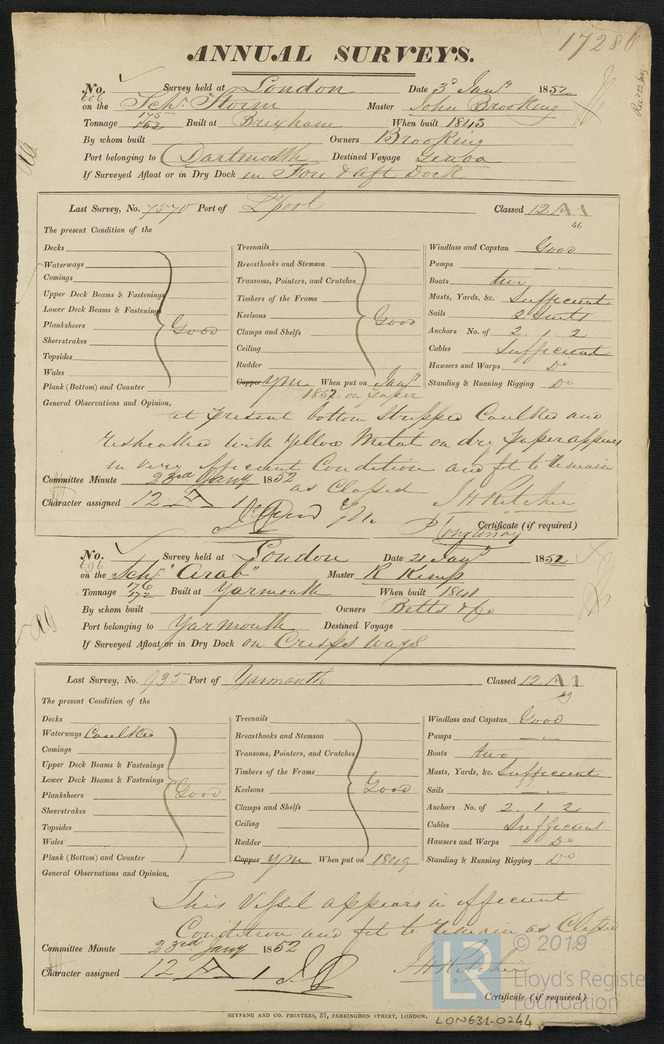 17286
ANNUAL SURVEYS.
Rec 22 Jany
No. 606 Survey held at London Date 3d Jany 1852
on the Schr Storm Master John Brooking
Tonnage 175/152 Built at Brixham When built 1845
By whom built Owners Brooking
Port belonging to Dartmouth Destined Voyage Genoa
If Surveyed Afloat or in Dry Dock in Fore & aft Dock
Last Survey, No. 7570 Port of L'pool Classed 12 A 1
46
The present Condition of the
Decks Treenails Windlass and Capstan Good
Waterways Breasthooks and Stemson Pumps
Comings Transoms, Pointers, and Crutches Boats two
Upper Deck Beams & Fastenings Timbers of the Frame Masts, Yards, &c. Sufficient
Lower Deck Beams & Fastenings Keelsons Sails 2 Suits
Planksheers Good Clamps and Shelfs Good Anchors No. of 2. 1. 2
Sheerstrakes Ceiling Cables Sufficient
Topsides Rudder Hawsers and Warps Do
Wales Copper YM When put on Jany Standing & Running Rigging Do
Plank (Bottom) and Counter 1852 on paper
General Observations and Opinion,
at present bottom Stripped Caulked and
resheathed with Yellow Metal on dry paper appears
in very efficient Condition and fit to remain
as Classed
Committee Minute 23rd Jany 1852
Character assigned 12 A 1 J H Ritchie
Certificate (if required)
No. 696 Survey held at London Date 21 Jany 1852
on the Schr "Arab" Master R Kemp
Tonnage 176/172 Built at Yarmouth When built 1841
By whom built Owners Betts & Co
Port belonging to Yarmouth Destined Voyage
If Surveyed Afloat or in Dry Dock on Crisps Ways
Last Survey, No. 935 Port of Yarmouth Classed 12 A 1
49
The present Condition of the
Decks Treenails Windlass and Capstan Good
Waterways Caulked Breasthooks and Stemson Pumps
Comings Transoms, Pointers, and Crutches Boats two
Upper Deck Beams & Fastenings Timbers of the Frame Masts, Yards, &c. Sufficient
Lower Deck Beams & Fastenings Keelsons Good Sails
Planksheers Good Clamps and Shelfs Anchors No. of 2. 1. 2
Sheerstrakes Ceiling Cables Sufficient
Topsides Rudder Hawsers and Warps Do
Wales Copper YM When put on 1849 Standing & Running Rigging Do
Plank (Bottom) and Counter
General Observations and Opinion,
This Vessel appears in efficient
Condition and fit to remain as Classed
Committee Minute 23rd Jany 1852
Character assigned 12 A 1 J H Ritchie
Certificate (if required)
SEYFANG AND CO. PRINTERS, 57, FARRINGDON STREET, LONDON.
LON631-0244
LR © 2019
Lloyd's Register
Foundation